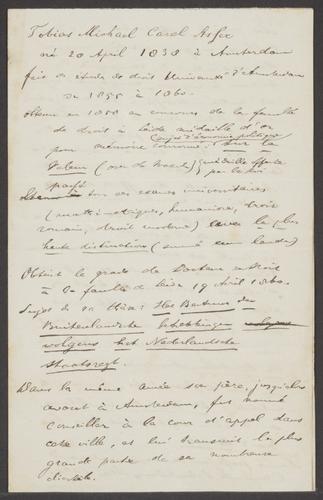 Tobias Michael Carel Asser
né 28 April 1838 à Amsterdam
fais des études de droit Université d'Amsterdam
de 1855 à 1860.
obtenu en 1858 au concours de la faculté
de droit à Leide médaille d'or
pour mémoire couronné: sur la
Cours d'économie politique
Valeur
par le roi
tous ses examens universitaires
(humaniora, droit
romain, droit moderne) avec la plus
haute distinction (summâ cum laude)
Obtient le grade de Docteur en droit
à la faculté de Leide 19 Avril 1860.
Sujet de sa thèse: Het Bestuur der
Buitenlandsche Betrekkingen volgens
volgens het Nederlandsche
Staatsregt.
Dans la même année son père, jusqu'alors
avocat à Amsterdam, fut nommé
Conseiller à la cour d'appel dans
cette ville, et lui transmit la plus
grande partie de sa nombreuse
clientèle.